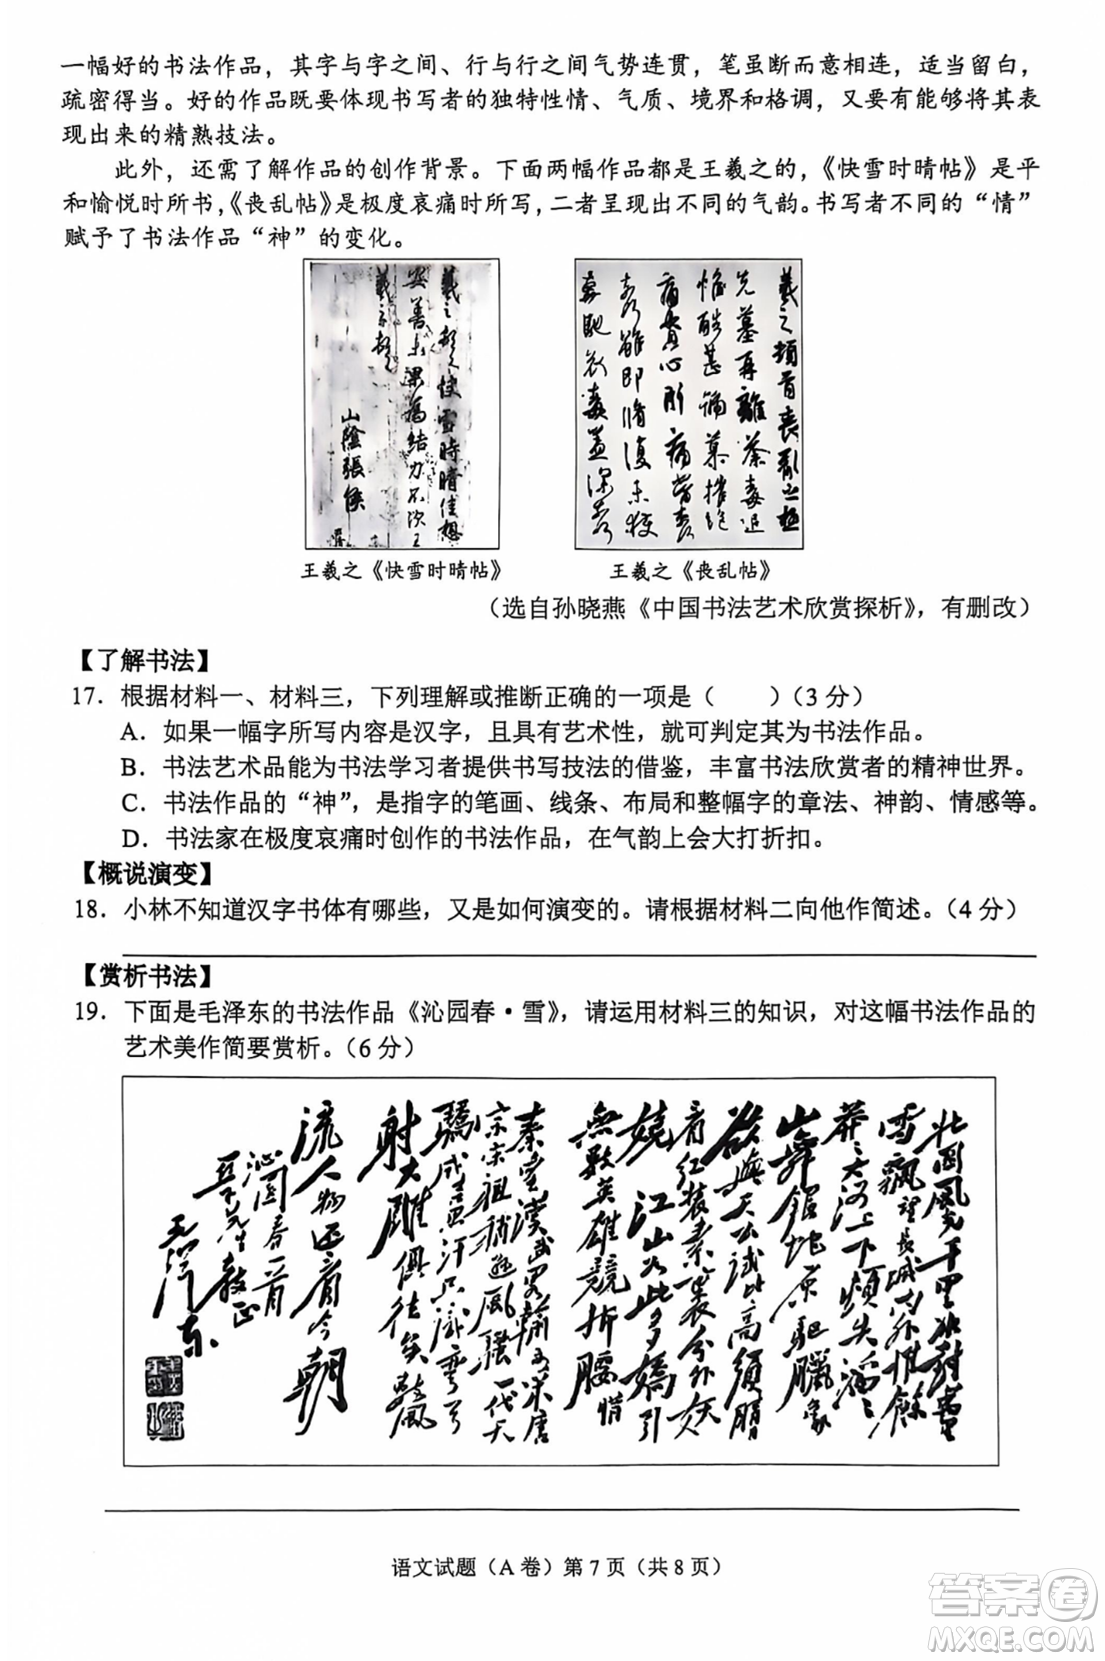 一幅好的书法作品，其字与字之间、行与行之间气势连贯，笔虽断而意相连，适当留白，
疏密得当。好的作品既要体现书写者的独特性情、气质、境界和格调，又要有能够将其表
现出来的精熟技法。
此外，还需了解作品的创作背景。下面两幅作品都是王羲之的，《快雪时晴帖》是平
和愉悦时所书，《丧乱帖》是极度哀痛时所写，二者呈现出不同的气韵。书写者不同的“情”
赋予了书法作品“神”的变化。
羲之頓首快雪時晴佳想
安善未果為結力不次王
羲之頓首
山陰張侯
羲之頓首喪亂之極
先墓再離荼毒追
惟酷甚號慕摧絶
痛貫心肝痛當奈
何雖即脩復未獲
奔馳哀毒益深奈
王羲之《快雪时晴帖》
王羲之《丧乱帖》
（选自孙晓燕《中国书法艺术欣赏探析》，有删改）
【了解书法】
17．根据材料一、材料三，下列理解或推断正确的一项是（　　）（3 分）
A．如果一幅字所写内容是汉字，且具有艺术性，就可判定其为书法作品。
B．书法艺术品能为书法学习者提供书写技法的借鉴，丰富书法欣赏者的精神世界。
C．书法作品的“神”，是指字的笔画、线条、布局和整幅字的章法、神韵、情感等。
D．书法家在极度哀痛时创作的书法作品，在气韵上会大打折扣。
【概说演变】
18．小林不知道汉字书体有哪些，又是如何演变的。请根据材料二向他作简述。（4 分）
【赏析书法】
19．下面是毛泽东的书法作品《沁园春·雪》，请运用材料三的知识，对这幅书法作品的
艺术美作简要赏析。（6 分）
北国風光千里冰封萬里
雪飄望長城内外惟餘
莽莽大河上下頓失滔滔
山舞銀蛇原驰臘象
欲與天公試比高須晴
看红装素裹分外妖
嬈江山如此多嬌引
無數英雄競折腰惜
秦皇漢武略輸文采唐
宗宋祖稍遜風騷一代天
驕成吉思汗只識彎弓
射大雕俱往矣數風
流人物还看今朝
沁园春一首
毛泽东
语文试题（A 卷）第 7 页（共 8 页）
答案卷
MXQE.COM